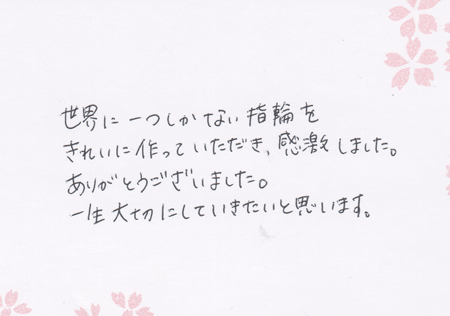 世界に一つしかない指輪を
きれいに作っていただき、感激しました。
ありがとうございました。
一生大切にしていきたいと思います。